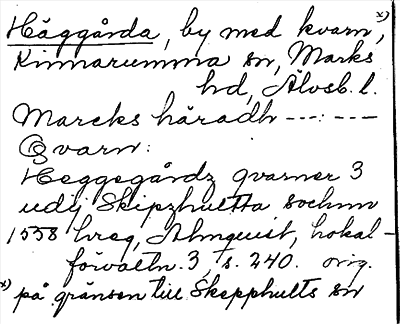 Häggårda, by med kvarn, x)
Kinnarumma sn, Marks
hd, Älvsb. l.
Marcks häradh ---:---
Qvarn:
Heggegårdz qvarner 3
udij Skipzhultta sochnn
1558 hreg, Almquist, lokal-
förvaltn. 3, s. 240. orig.
x) på gränsen till Skepphults sn